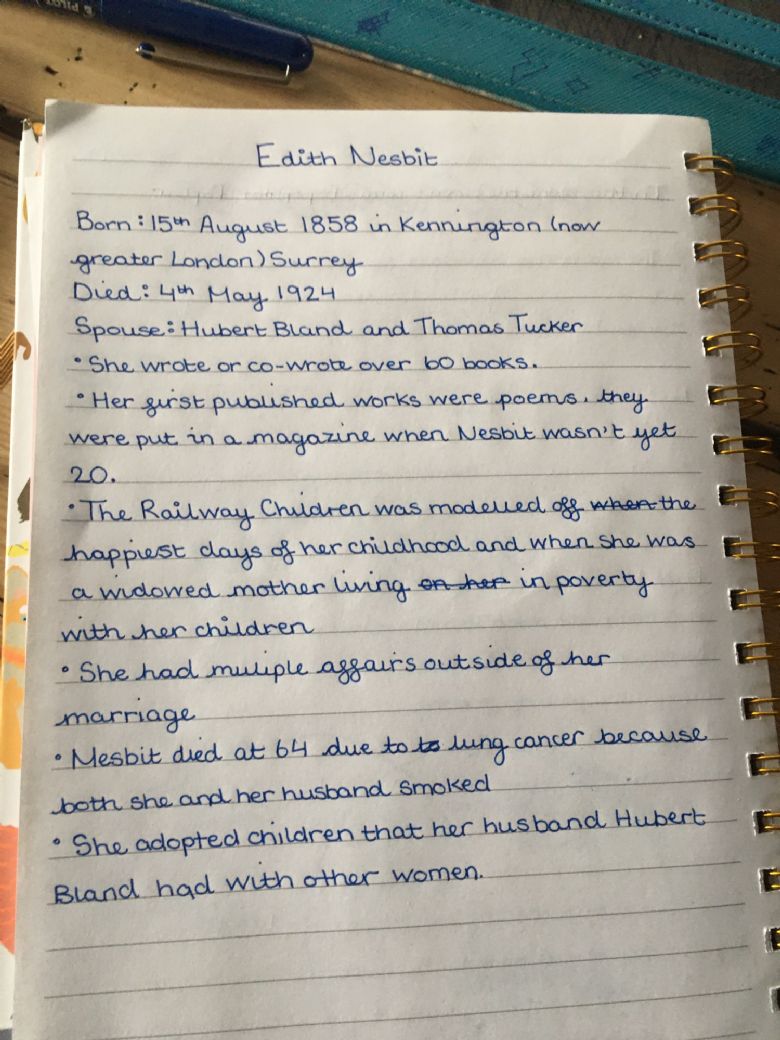 PILOT
Edith Nesbit
Born: 15th August 1858 in Kennington (now
greater London) Surrey
Died: 4th May 1924
Spouse: Hubert Bland and Thomas Tucker
• She wrote or co-wrote over 60 books.
• Her first published works were poems. they
were put in a magazine when Nesbit wasn't yet
20.
• The Railway Children was modelled off when the
happiest days of her childhood and when she was
a widowed mother living on her in poverty
with her children
• She had muliple affairs outside of her
marriage
• Nesbit died at 64 due to to lung cancer because
both she and her husband smoked
• She adopted children that her husband Hubert
Bland had with other women.